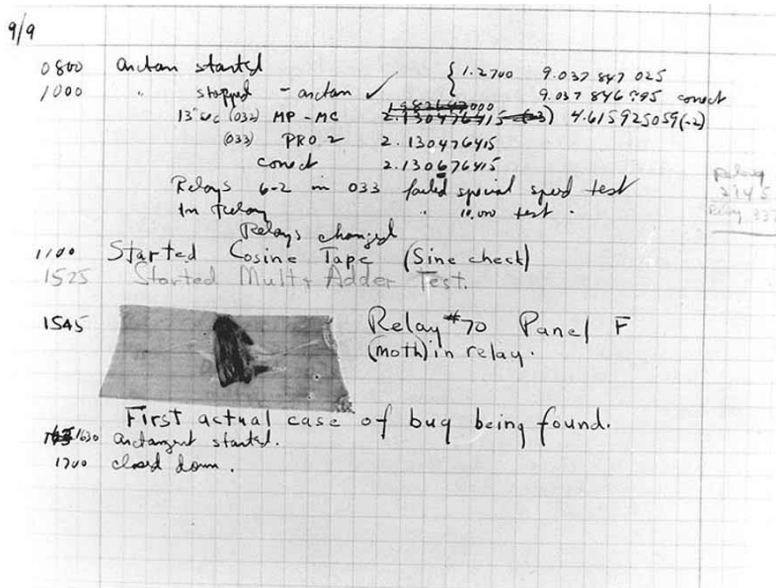 9/9
0800 Antan started
1000 " stopped - antan ✓ { 1.2700 9.037 847 025
9.037 846 995 correct
13"uc (032) MP-MC 2.130476415 (-3) 4.615925059(-2)
(033) PRO 2 2.130476415
correct 2.130676415
Relays 6-2 in 033 failed special speed test
In Relay " 10,000 test .
Relays changed
Relay
1100 Started Cosine Tape (Sine check)
1525 Started Mult+ Adder Test.
1545 Relay #70 Panel F
(moth) in relay.
First actual case of bug being found.
1630 antangent started.
1700 closed down.